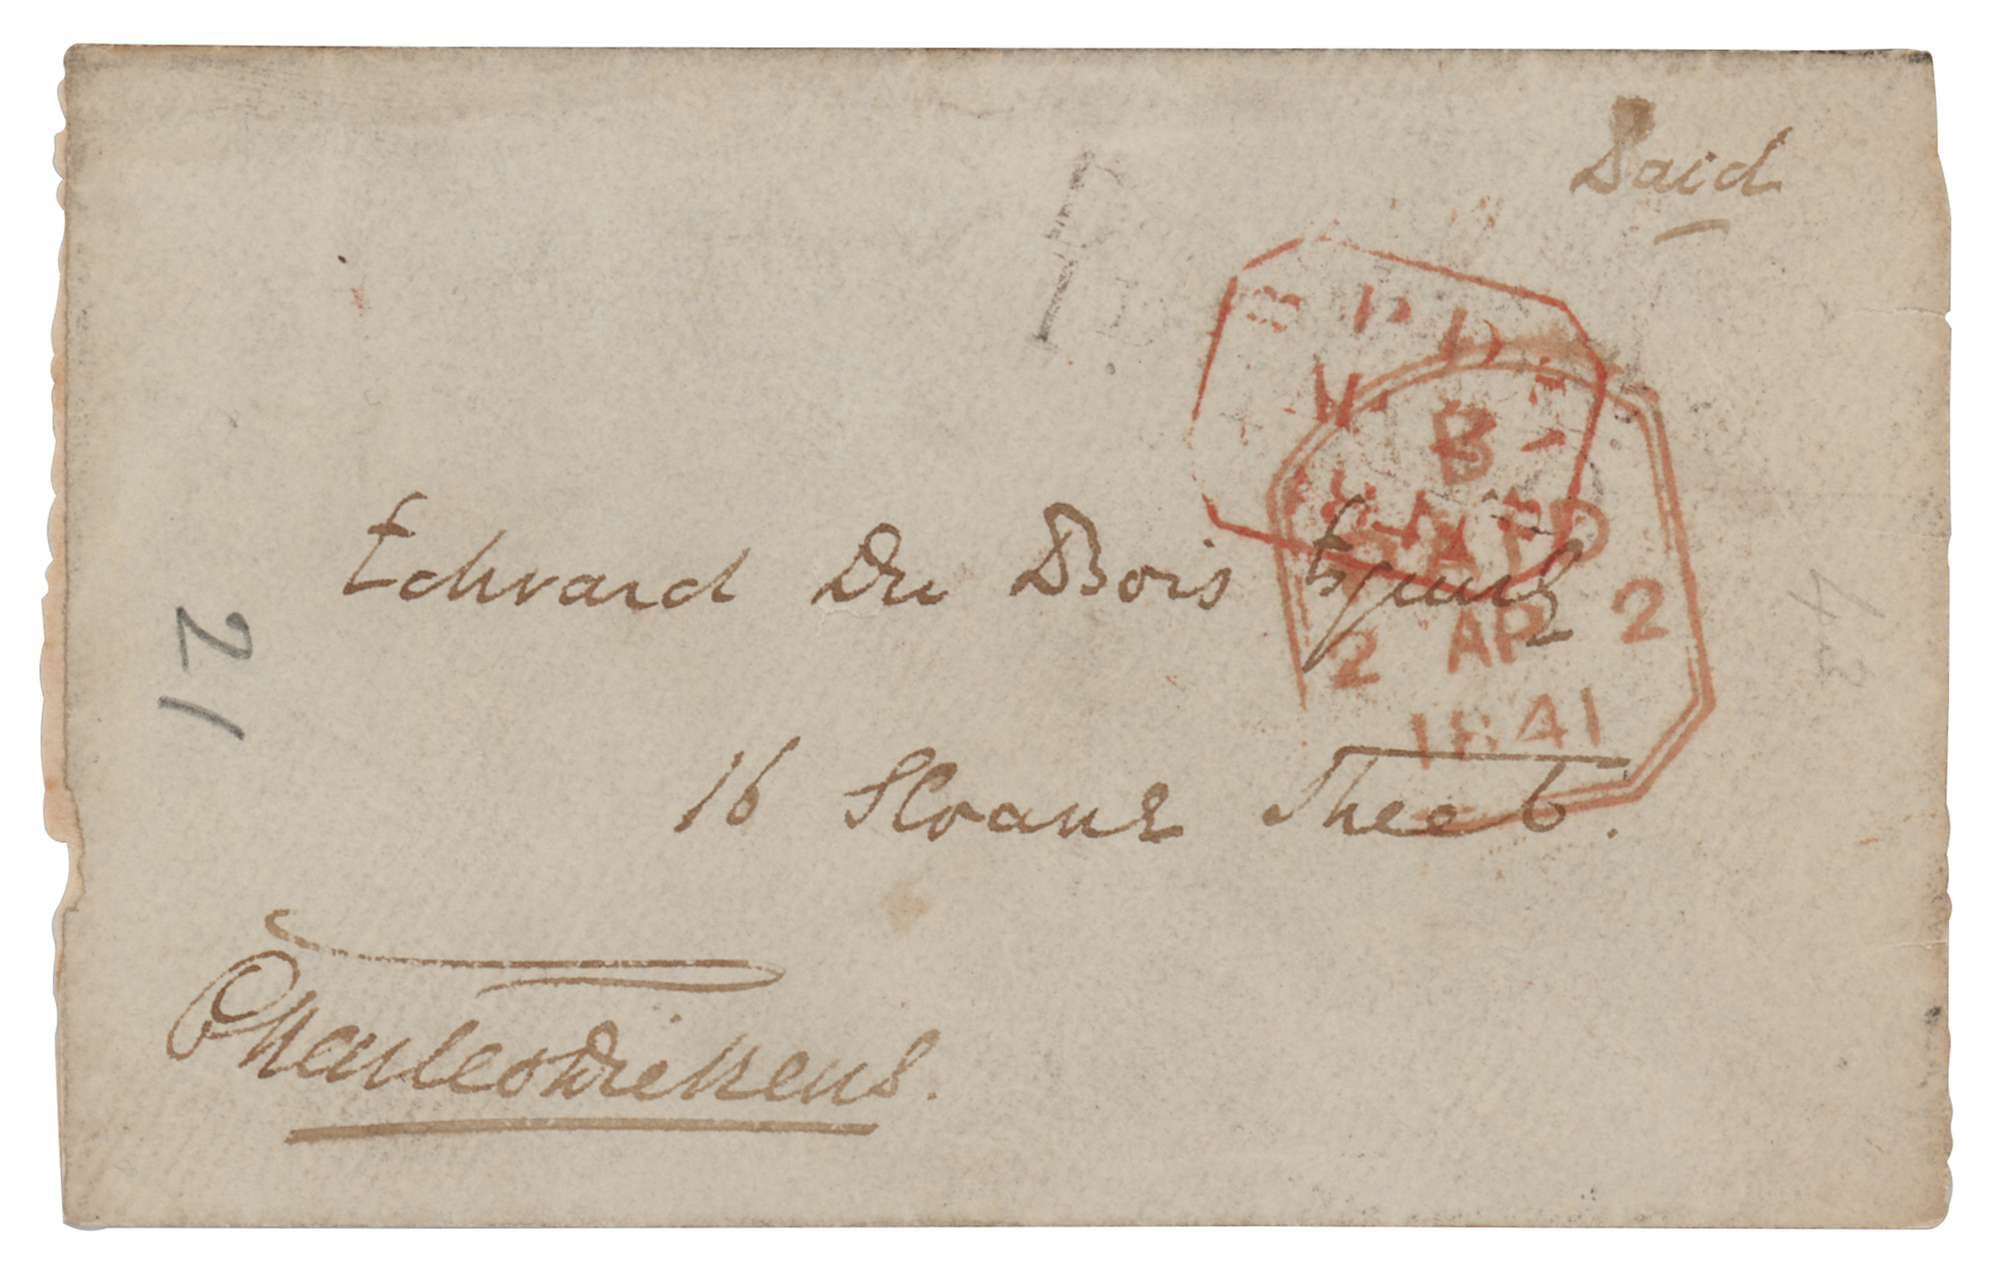 Paid
B
PAID
2 AP 2
1841
Edward Du Bois Esquire
16 Sloane Street.
21
Charles Dickens.